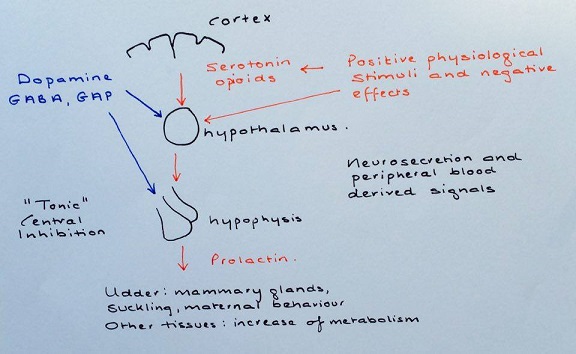 cortex
Serotonin
opoids
Positive physiological
stimuli and negative
effects
Dopamine
GABA, GAP
hypothalamus.
Neurosecretion and
peripheral blood
derived signals
"Tonic"
Central
Inhibition
hypophysis
Prolactin.
Udder: mammary glands,
suckling, maternal behaviour
Other tissues: increase of metabolism